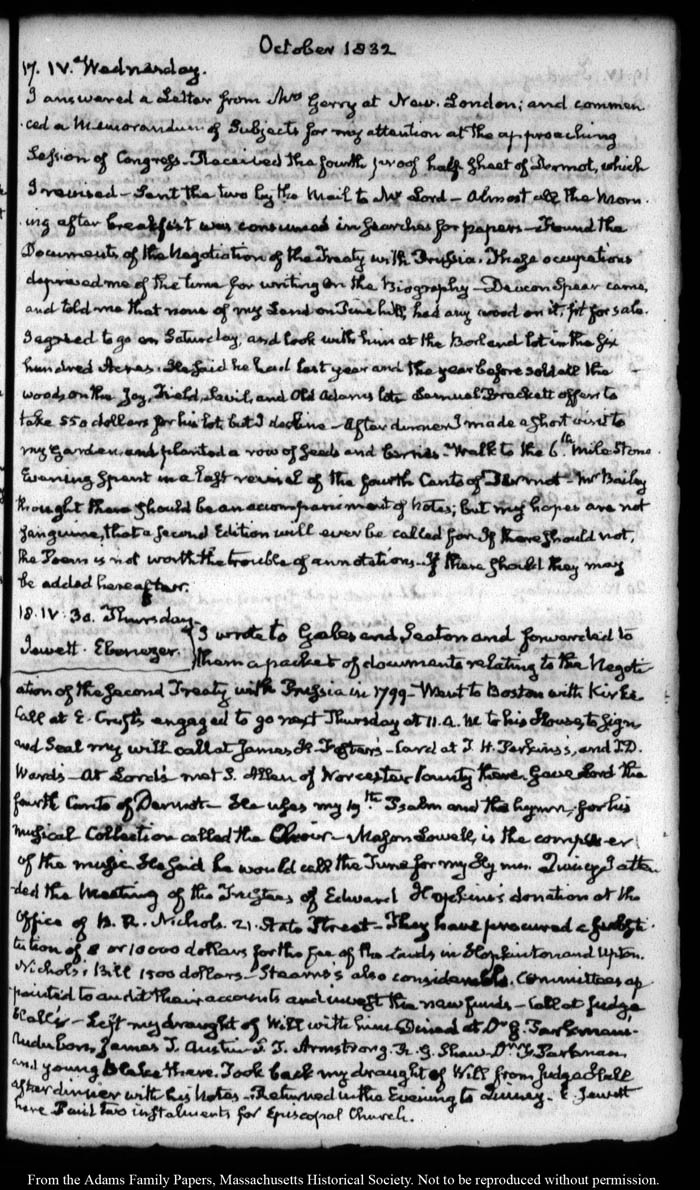 October 1832
17. IV. Wednesday.
I answered a Letter from Mrs Gerry at New-London; and commen
ced a Memorandum of Subjects for my attention at the approaching
Session of Congress. Received the fourth proof half sheet of Dermot, which
I revised - Sent the two by the Mail to Mr Lord - Almost all the Morn-
ing after breakfast was consumed in searches for papers - Found the
Documents of the Negotiation of the Treaty with Prussia. These occupations
deprived me of the time for writing on the Biography - Deacon Spear came,
and told me that none of my Land on Pine hill, had any wood on it, fit for sale.
I agreed to go on Saturday, and look with him at the Borland lot in the Six
hundred Acres. He said he had last year and the year before sold all the
woods on the Joy, Field, Savil, and Old Adams lots Samuel Brackett offers to
take 550 dollars for his lot, but I decline - After dinner I made a short visit to
my Garden, and planted a row of seeds and berries - Walk to the 6th Mile Stone.
Evening spent in a last revisal of the fourth Canto of Dermot - Mr Bailey
thought there should be an accompaniment of Notes; but my hopes are not
sanguine, that a second Edition will ever be called for. If there should not,
the Poem is not worth the trouble of annotations. If there should they may
be added hereafter.
18. IV. 30. Thursday.
Jewett. Ebenezer. I wrote to Gales and Seaton and forwarded to
them a packet of documents relating to the Negoti
ation of the second Treaty with Prussia in 1799 - Went to Boston with Kirke
Call at E. Cruft's engaged to go next Thursday at 11. A.M to his House, to Sign
and Seal my will call at James H. Foster's - Card at T. H. Perkins's, and T.D.
Wards - At Lord's met S. Allen of Worcester County there. Gave Lord the
fourth Canto of Dermot - He uses my 19th Psalm and the hymn, for his
musical Collection called the Choir - Mason Lowell, is the composer
of the music He said he would call the Tune for my Hymn. Quincy. I atten
ded the Meeting of the Trustees of Edward Hopkins's donation at the
Office of B. R. Nichols. 21. State Street - They have procured a substi
tution of 8 or 10000 dollars for the fee of the Lands in Hopkinton and Upton.
Nichols's Bill 1500 dollars - Stearns's also considerable. Committees ap
pointed to audit their accounts and invest the new funds - Call at Judge
Hall's - Left my draught of Will with him Dined at Dr G. Parkmans.
Audubon, James T. Austin S. T. Armstrong. R. G. Shaw. Dr F. Parkman
and young Blake there. Took back my draught of Will from Judge Hall
after dinner with his Notes - Returned in the Evening to Quincy - E. Jewett
here Paid two instalments for Episcopal Church.
From the Adams Family Papers, Massachusetts Historical Society. Not to be reproduced without permission.